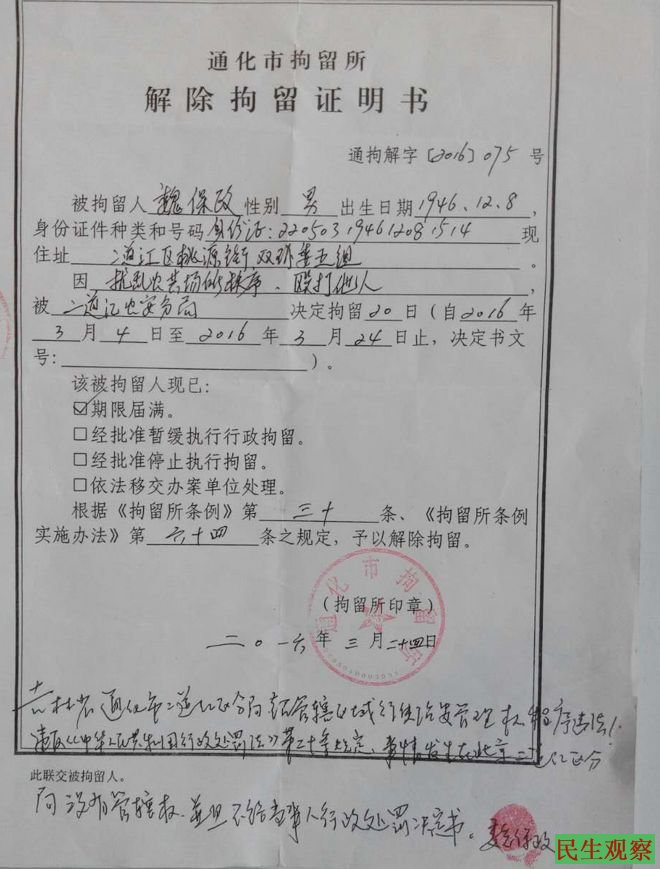 通化市拘留所
解除拘留证明书
通拘解字〔2016〕075号
被拘留人 魏保政 性别 男 出生日期 1946.12.8,
身份证件种类和号码 身份证:220503194612081514 现
住址 二道江区桃源街双龙委五组。
因 扰乱公共场所秩序、殴打他人,
被 二道江公安分局 决定拘留20日(自2016年
3月4日至2016年3月24日止,决定书文
号:)。
该被拘留人现已:
☑期限届满。
□经批准暂缓执行行政拘留。
□经批准停止执行拘留。
□依法移交办案单位处理。
根据《拘留所条例》第 三十 条、《拘留所条例
实施办法》第 六十四 条之规定,予以解除拘留。
通化市拘留所
(拘留所印章)
二〇一六年三月二十四日
吉林省通化市二道江区分局超管辖区域行使治安管理权程序违法!
违反《中华人民共和国行政处罚法》第二十条规定,事情发生在北京二道江区分
此联交被拘留人。
局没有管辖权,并且不给当事人行政处罚决定书。魏保政
民生观察